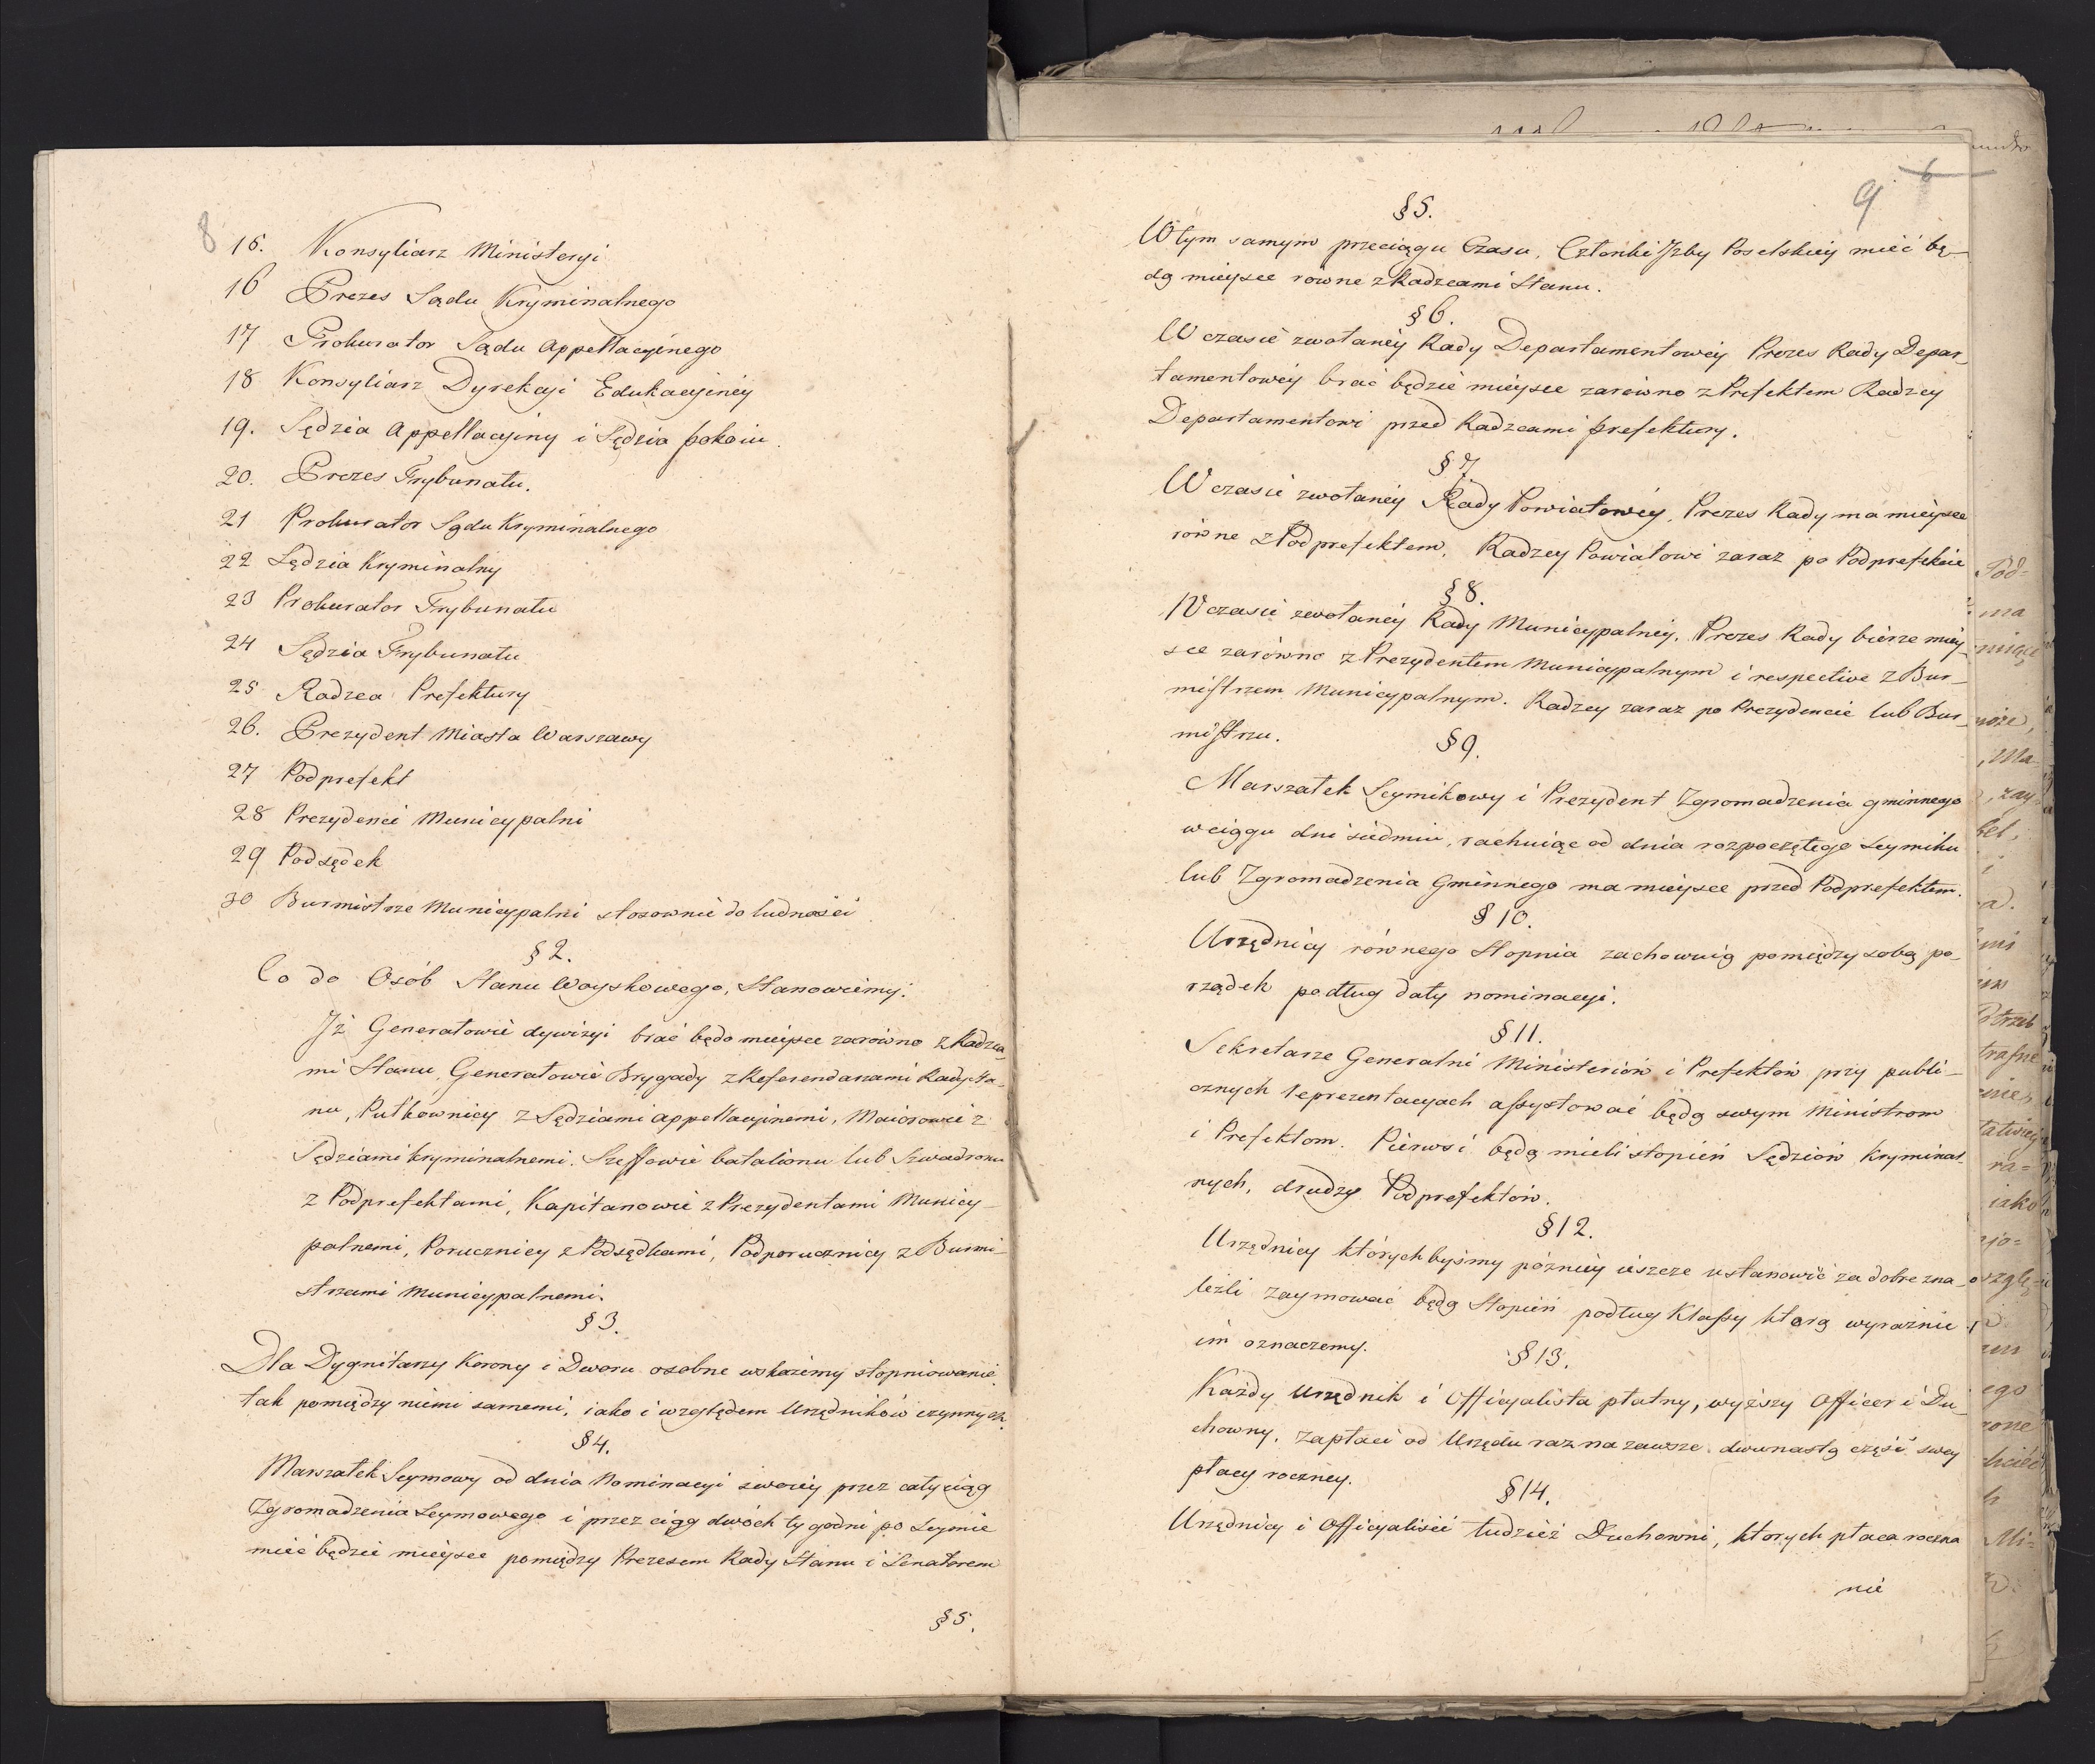 8
15. Konsyliarz Ministeryi
16 Prezes Sądu Kryminalnego
17 Prokurator Sądu Appellacyinego
18 Konsyliarz Dyrekcyi Edukacyiney
19. Sędzia Appellacyiny i Sędzia pokoiu.
20. Prezes Trybunału.
21 Prokurator Sądu Kryminalnego
22 Sędzia Kryminalny
23 Prokurator Trybunału
24 Sędzia Trybunału
25 Radzca Prefektury
26. Prezydent Miasta Warszawy
27 Podprefekt
28 Prezydenci Municypalni
29 Podsędek
30 Burmistrze Municypalni stosownie do ludności
§ 2.
Co do Osób Stanu Woyskowego, Stanowiemy:
Jż Generałowie dywizyi brać będą mieysce zarówno z Radzca
mi Stanu, Generałowie Brygady z Referendarzami Rady Sta-
nu, Pułkownicy z Sędziami appellacyinemi, Maiorowie z
Sędziami kryminalnemi. Szeffowie batalionu lub Szwadronu
z Podprefektami, Kapitanowie z Prezydentami Municy-
palnemi, Porucznicy z Podsędkami, Podporucznicy z Burmi-
strzami Municypalnemi.
§ 3.
Dla Dygnitarzy Korony i Dworu osobne wskażemy stopniowanie,
tak pomiędzy niemi samemi, iako i względem Urzędników czynnych.
§ 4.
Marszałek Seymowy od dnia Nominacyi swoiey przez cały ciąg
Zgromadzenia Seymowego i przez ciąg dwóch tygodni po Seymie
mieć będzie mieysce pomiędzy Prezesem Rady Stanu i Senatorem
§ 5.
9
6
§ 5.
W tym samym przeciągu Czasu, Członki Jzby Poselskiey mieć bę-
dą mieysce równe z Radzcami Stanu.
§ 6.
W czasie zwołaney Rady Departamentowey Prezes Rady Depar-
tamentowey brać będzie mieysce zarówno z Prefektem Radzcy
Departamentowi przed Radzcami prefektury.
§ 7
W czasie zwołaney Rady Powiatowey, Prezes Rady ma mieysce
równe z Podprefektem, Radzcy Powiatowi zaraz po Podprefekcie
§ 8.
W czasie zwołaney Rady Municypalney, Prezes Rady bierze miey-
sce zarówno z Prezydentem Municypalnym i respective z Bur-
mistrzem Municypalnym. Radzcy zaraz po Prezydencie lub Bur-
mistrzu.
§ 9.
Marszałek Seymikowy i Prezydent Zgromadzenia gminnego
w ciągu dni siedmiu, rachuiąc od dnia rozpoczętego Seymiku
lub Zgromadzenia Gminnego ma mieysce przed Podprefektem.
§ 10.
Urzędnicy równego Stopnia zachowuią pomiędzy sobą po-
rządek podług daty nominacyi.
§ 11.
Sekretarze Generalni Ministeriów i Prefektów przy publi-
cznych reprezentacyach assystować będą swym Ministrom
i Prefektom. Pierwsi będą mieli stopień Sędziów Kryminal-
nych, drudzy Podprefektów.
§ 12.
Urzędnicy których byśmy późniey ieszcze ustanowić za dobre zna-
leźli zaymować będą Stopień podług Klassy którą wyraźnie
im oznaczemy.
§ 13.
Każdy Urzędnik i Officyalista płatny, wyższy Officer i Du-
chowny, zapłaci od Urzędu raz na zawsze dwunastą część swey
płacy roczney.
§ 14.
Urzędnicy i Officyaliści tudzież Duchowni, których płaca roczna
nie